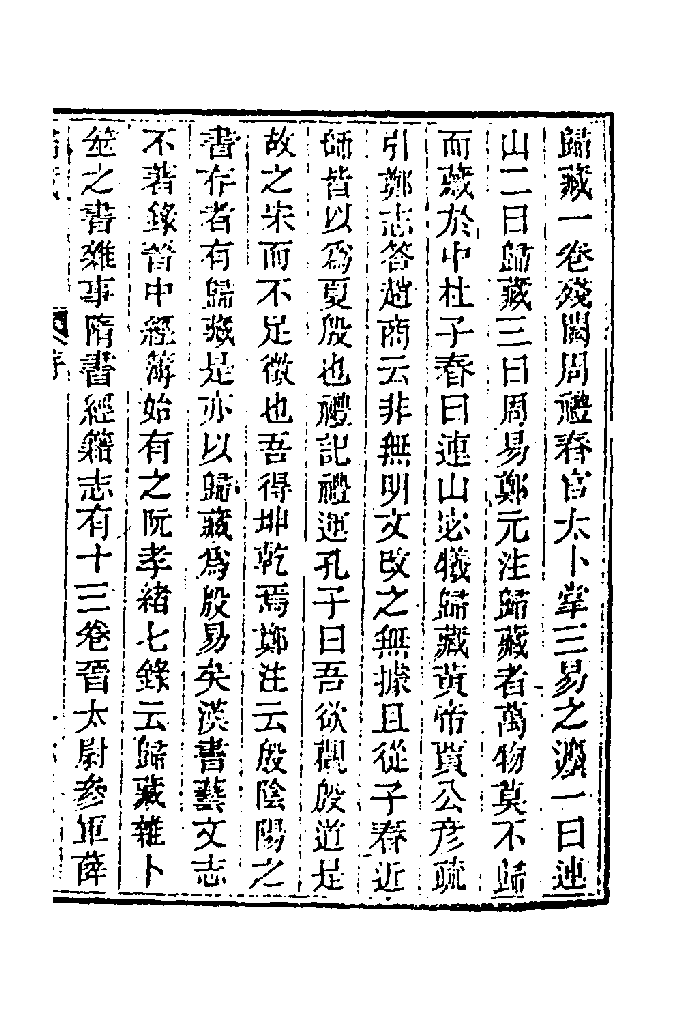 歸藏一卷殘闕周禮春官太卜掌三易之灋一曰連
山二曰歸藏三曰周易鄭元注歸藏者萬物莫不歸
而藏於中杜子春曰連山宓犧歸藏黃帝賈公彥疏
引鄭志答趙商云非無明文改之無據且從子春近
師皆以爲夏殷也禮記禮運孔子曰吾欲觀殷道是
故之宋而不足徵也吾得坤乾焉鄭注云殷陰陽之
書存者有歸藏是亦以歸藏爲殷易矣漢書藝文志
不著錄晉中經簿始有之阮孝緒七錄云歸藏雜卜
筮之書雜事隋書經籍志有十三卷晉太尉參軍薛
序